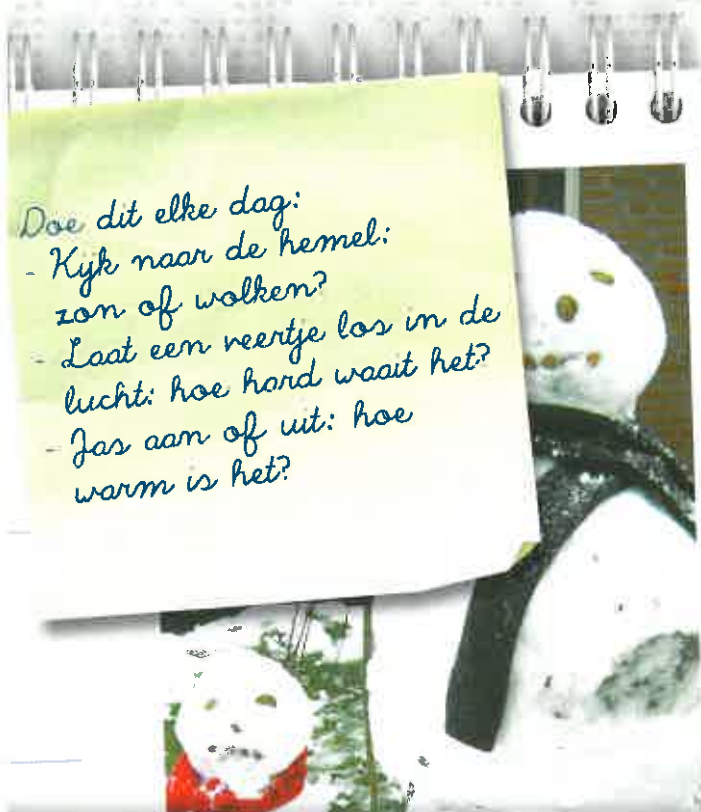 Doe dit elke dag:
- Kijk naar de hemel:
zon of wolken?
- Laat een veertje los in de
lucht: hoe hard waait het?
- Jas aan of uit: hoe
warm is het?